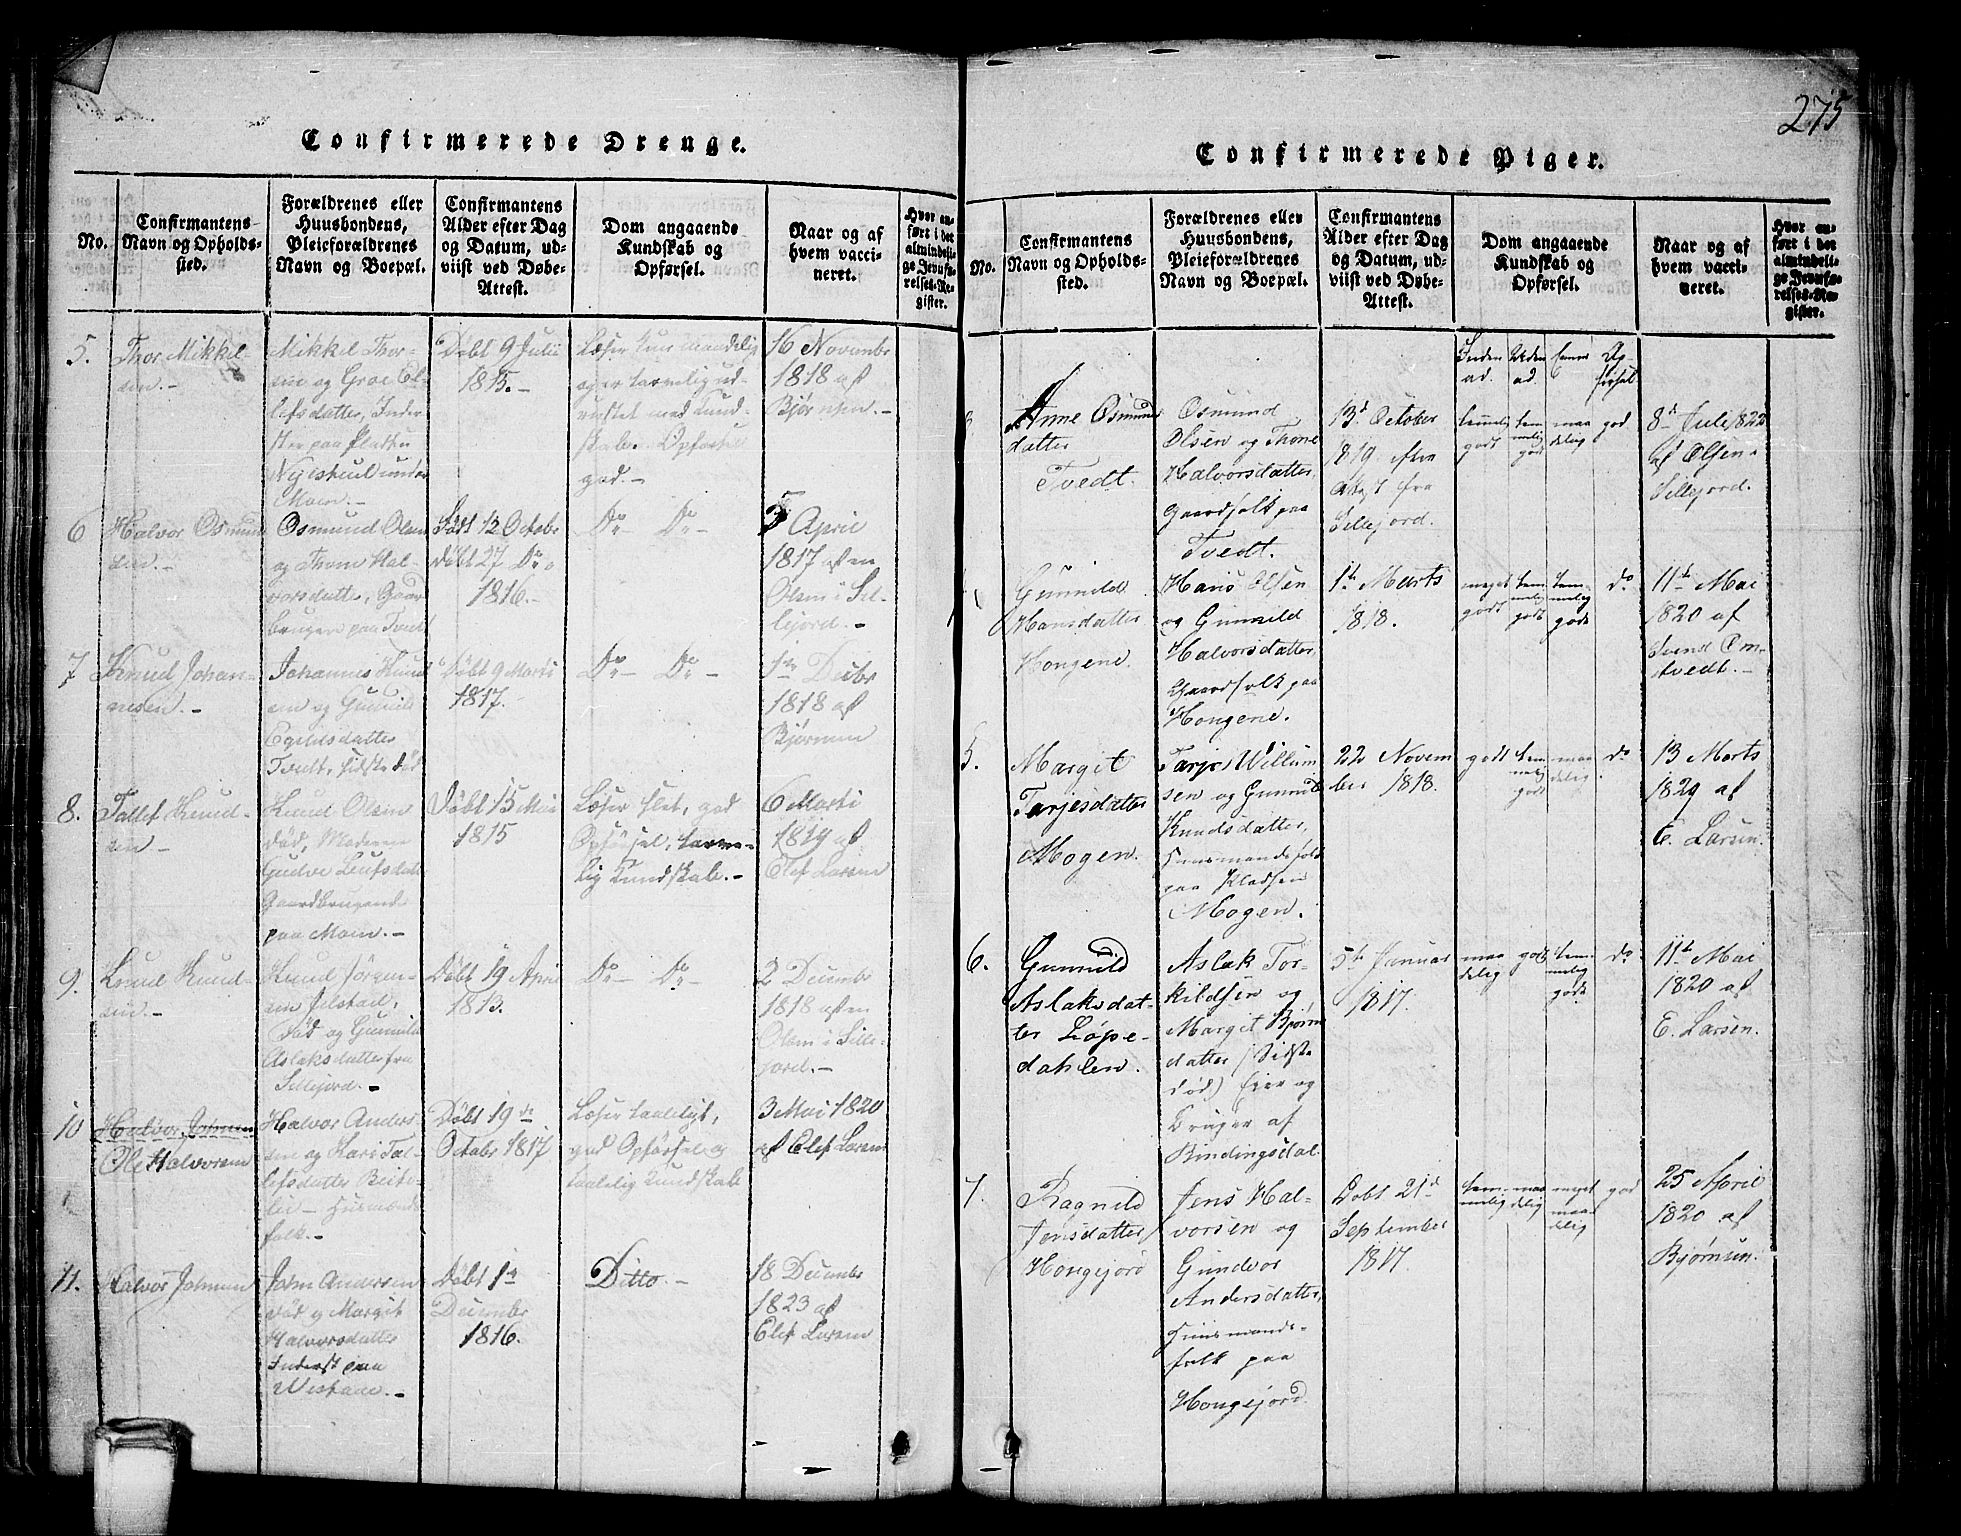 275
Confirmerede Drenge.
No.
Confirmantens
Navn og Opholds-
sted.
Forældrenes eller
Huusbondens,
Pleieforældrenes
Navn og Boepæl.
Confirmantens
Alder efter Dag
og Datum, ud-
viist ved Døbe-
Attest.
Dom angaaende
Kundskab og
Opførsel.
Naar og af
hvem vacci-
neret.
Hvor an-
ført i det
almindeli-
ge Jevnfø-
relses-Re-
gister.
5.
Thor Mikkel-
sen.-
Mikkel Thor-
sen og Groe Ol-
lefsdatter, Inder
ster paa Pladsen
under
Moen.-
Døbt 9 Julii
1815.-
Læser maadelig
og er tarvelig ud-
rustet med Kund
skab. Opførsel
god.-
16 Novembr
1818 af
Bjørnsen.-
6
Halvor Osmund
sen.-
Osmund Olsen
og Thone Hal-
vorsdatter, Gaar
brugere paa Tvedt
Født 12 Octobr
døbt 27 Do
1816.-
Do- Do-
5 April
1817 af en
Olsen i Sil-
lejord.-
7
Knud Johan-
nesen.-
Johannes Knud
sen og Gunnild
Egilds datter
Tvedt, sidste død
Døbt 9 Marti
1817.
Do- Do-
1te Decbr
1818 af
Bjørnsen
8.
Tallef Knud-
sen-
Knud Olsen
død, Moderen
Gunve Leufsdatt
Gaardbrugende
paa Moen.-
Døbt 15 Mai
1815
Læser slet, god
Opførsel, tarve-
lig Kundskab.-
6 Marti
1819 af
Elef Larsen
9.
Knud Knud-
sen.-
Knud Jørgen-
sen
død og Gunnild
Aslaksdatter fra
Sillejord.-
Døbt 19 April
1813.
Do- Do-
2 Decembr
1818 af en
Olsen i Sille-
jord.-
10
Halvor Johnsen
Ole Halvorsen
Halvor Anders
sen og Kari Tal-
lefsdatter Beite-
lie- Husmands
folk.-
Døbt 19de
Octobr 1817
Læser taaleligt,
god Opførsel og
taalelig Kundskab
3 Mai 1820
af Elef Larsen
11.
Halvor Johnsen
John Andersen
død og Margit
Halvorsdatter
Inderst paa
Døbt 1te
Decembr
1816.
Ditto.-
18 Decembr
1823 af
Elef Larsen
Confirmerede Piger.
No.
Confirmantens
Navn og Opholds-
sted.
Forældrenes eller
Huusbondens,
Pleieforældrenes
Navn og Boepæl.
Confirmantens
Alder efter Dag
og Datum, ud-
viist ved Døbe-
Attest.
Dom angaaende
Kundskab og
Opførsel.
Naar og af
hvem vacci-
neret.
Hvor an-
ført i det
almindeli-
ge Jevnfø-
relses-Re-
gister.
Inden
ad.
Uden
ad.
Op-
førsel
Anne Osmunds
datter
Tvedt.
Osmund
Olsen og Thone
Halvorsdatter
Gaardfolk paa
Tvedt.
13d October
1819 efter
Attest fra
Sillejord.
temmelig
godt
tem
melig
godt
maa
delig
god
8d Juli 1822
af Olsen-
Sillejord.
Gunnild
Hansdatter
Hongene.
Hans Olsen
og Gunnild
Halvorsdatter,
Gaardfolk paa
Hongene.
1te Marts
1818.
meget
godt
tem
melig
godt
tem-
melig
godt
do
11te Mai
1820 af
Svend Om-
tvedt.-
5.
Margit
Tarjesdatter
Mogen.
Tarje Willum
sen og Gunnild
Knudsdatter,
Huusmandsfolk
paa Pladsen
Mogen.
22 Novem
ber 1818.
godt
tem
melig
godt
maa
delig
do
13 Marts
1829 af
E. Larsen.
6.
Gunnild
Aslaksdat-
ter Løpe-
dahlen.
Aslak Tor-
kildsen og
Margit Bjørns
datter (Sidste
død) Eier og
Bruger af
Bindingsdal.
5te Januar
1817.
maa
delig
godt
tem-
melig
godt
do
11te Mai
1820 af
E. Larsen.
7.
Ragnild
Jensdatter
Hongejord
Jens Hal-
vorsen og
Gundvor
Andersdatter,
Huusmands-
folk paa
Hongejord
Døbt 21d
September
1817.
tem-
melig
maa
delig
meget
maa
delig
god
25 April
1820 af
Bjørnsen.